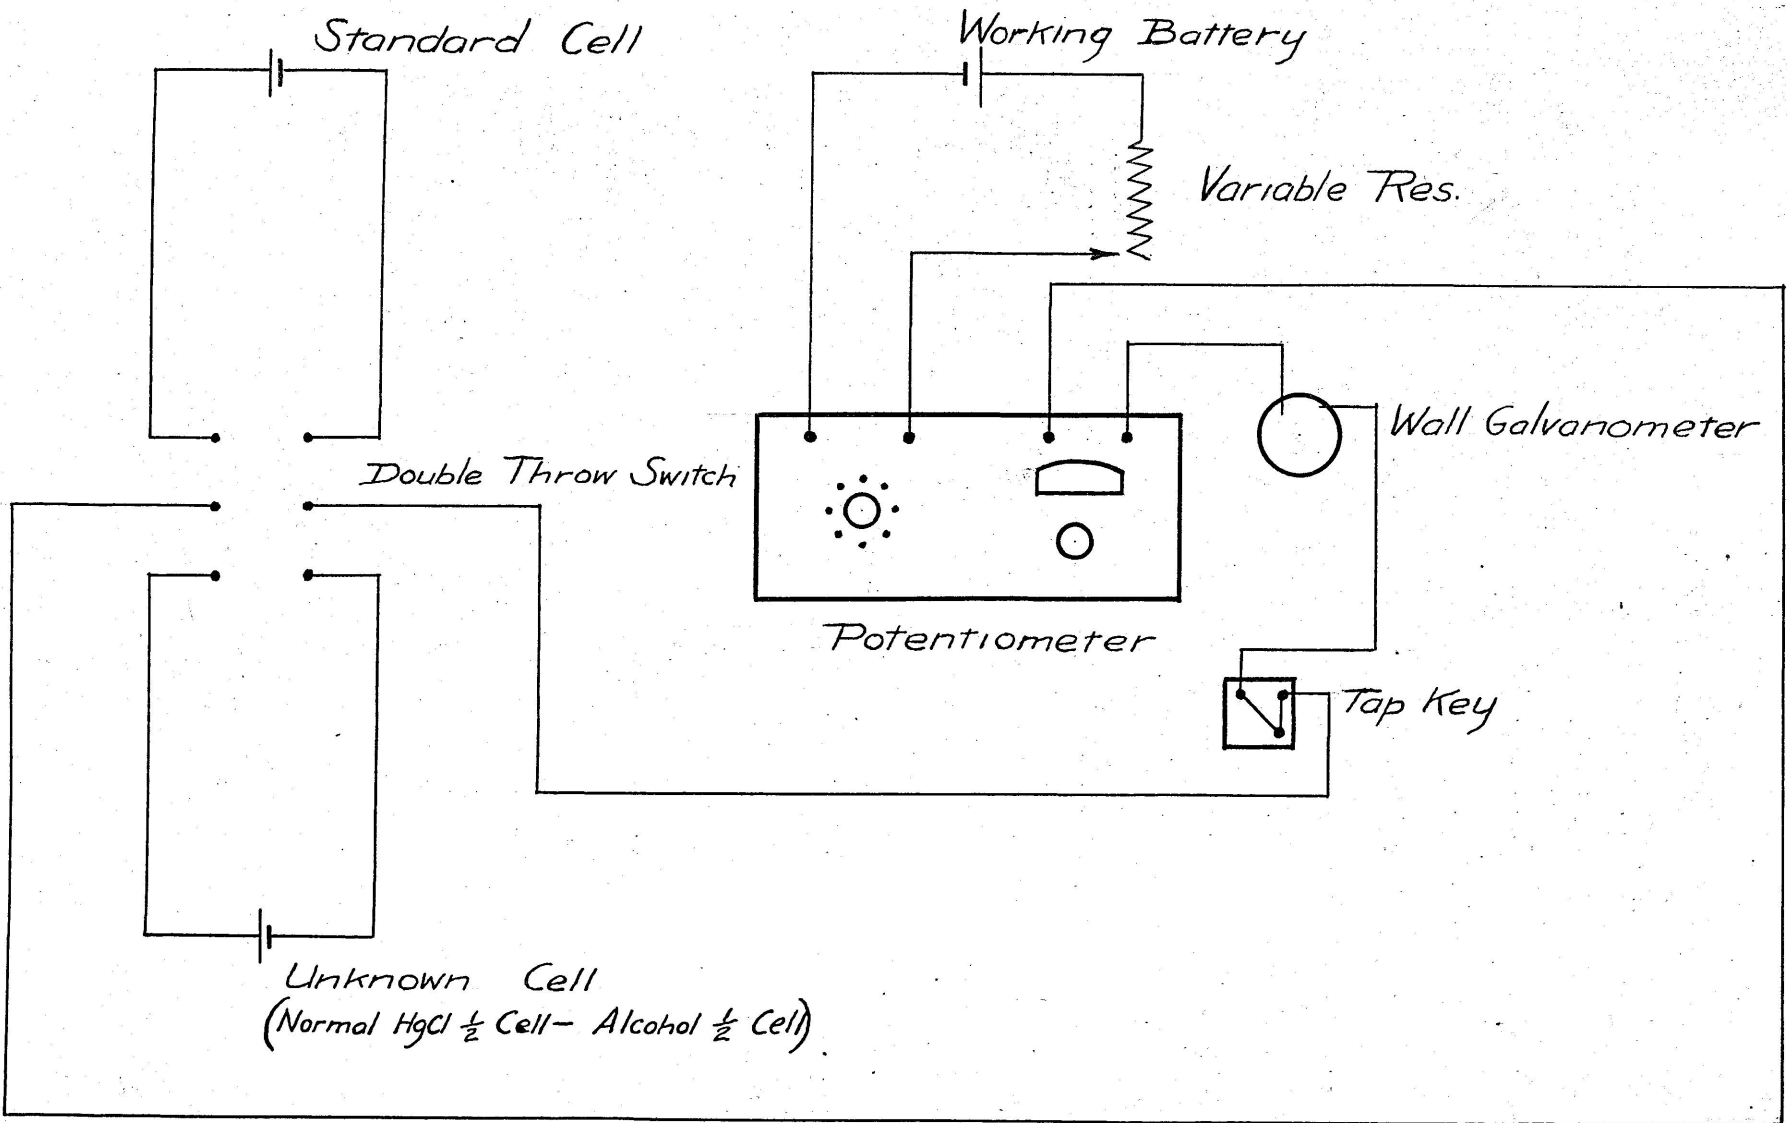 Standard Cell
Working Battery
Variable Res.
Wall Galvanometer
Double Throw Switch
Potentiometer
Tap Key
Unknown Cell
(Normal HgCl ½ Cell- Alcohol ½ Cell)